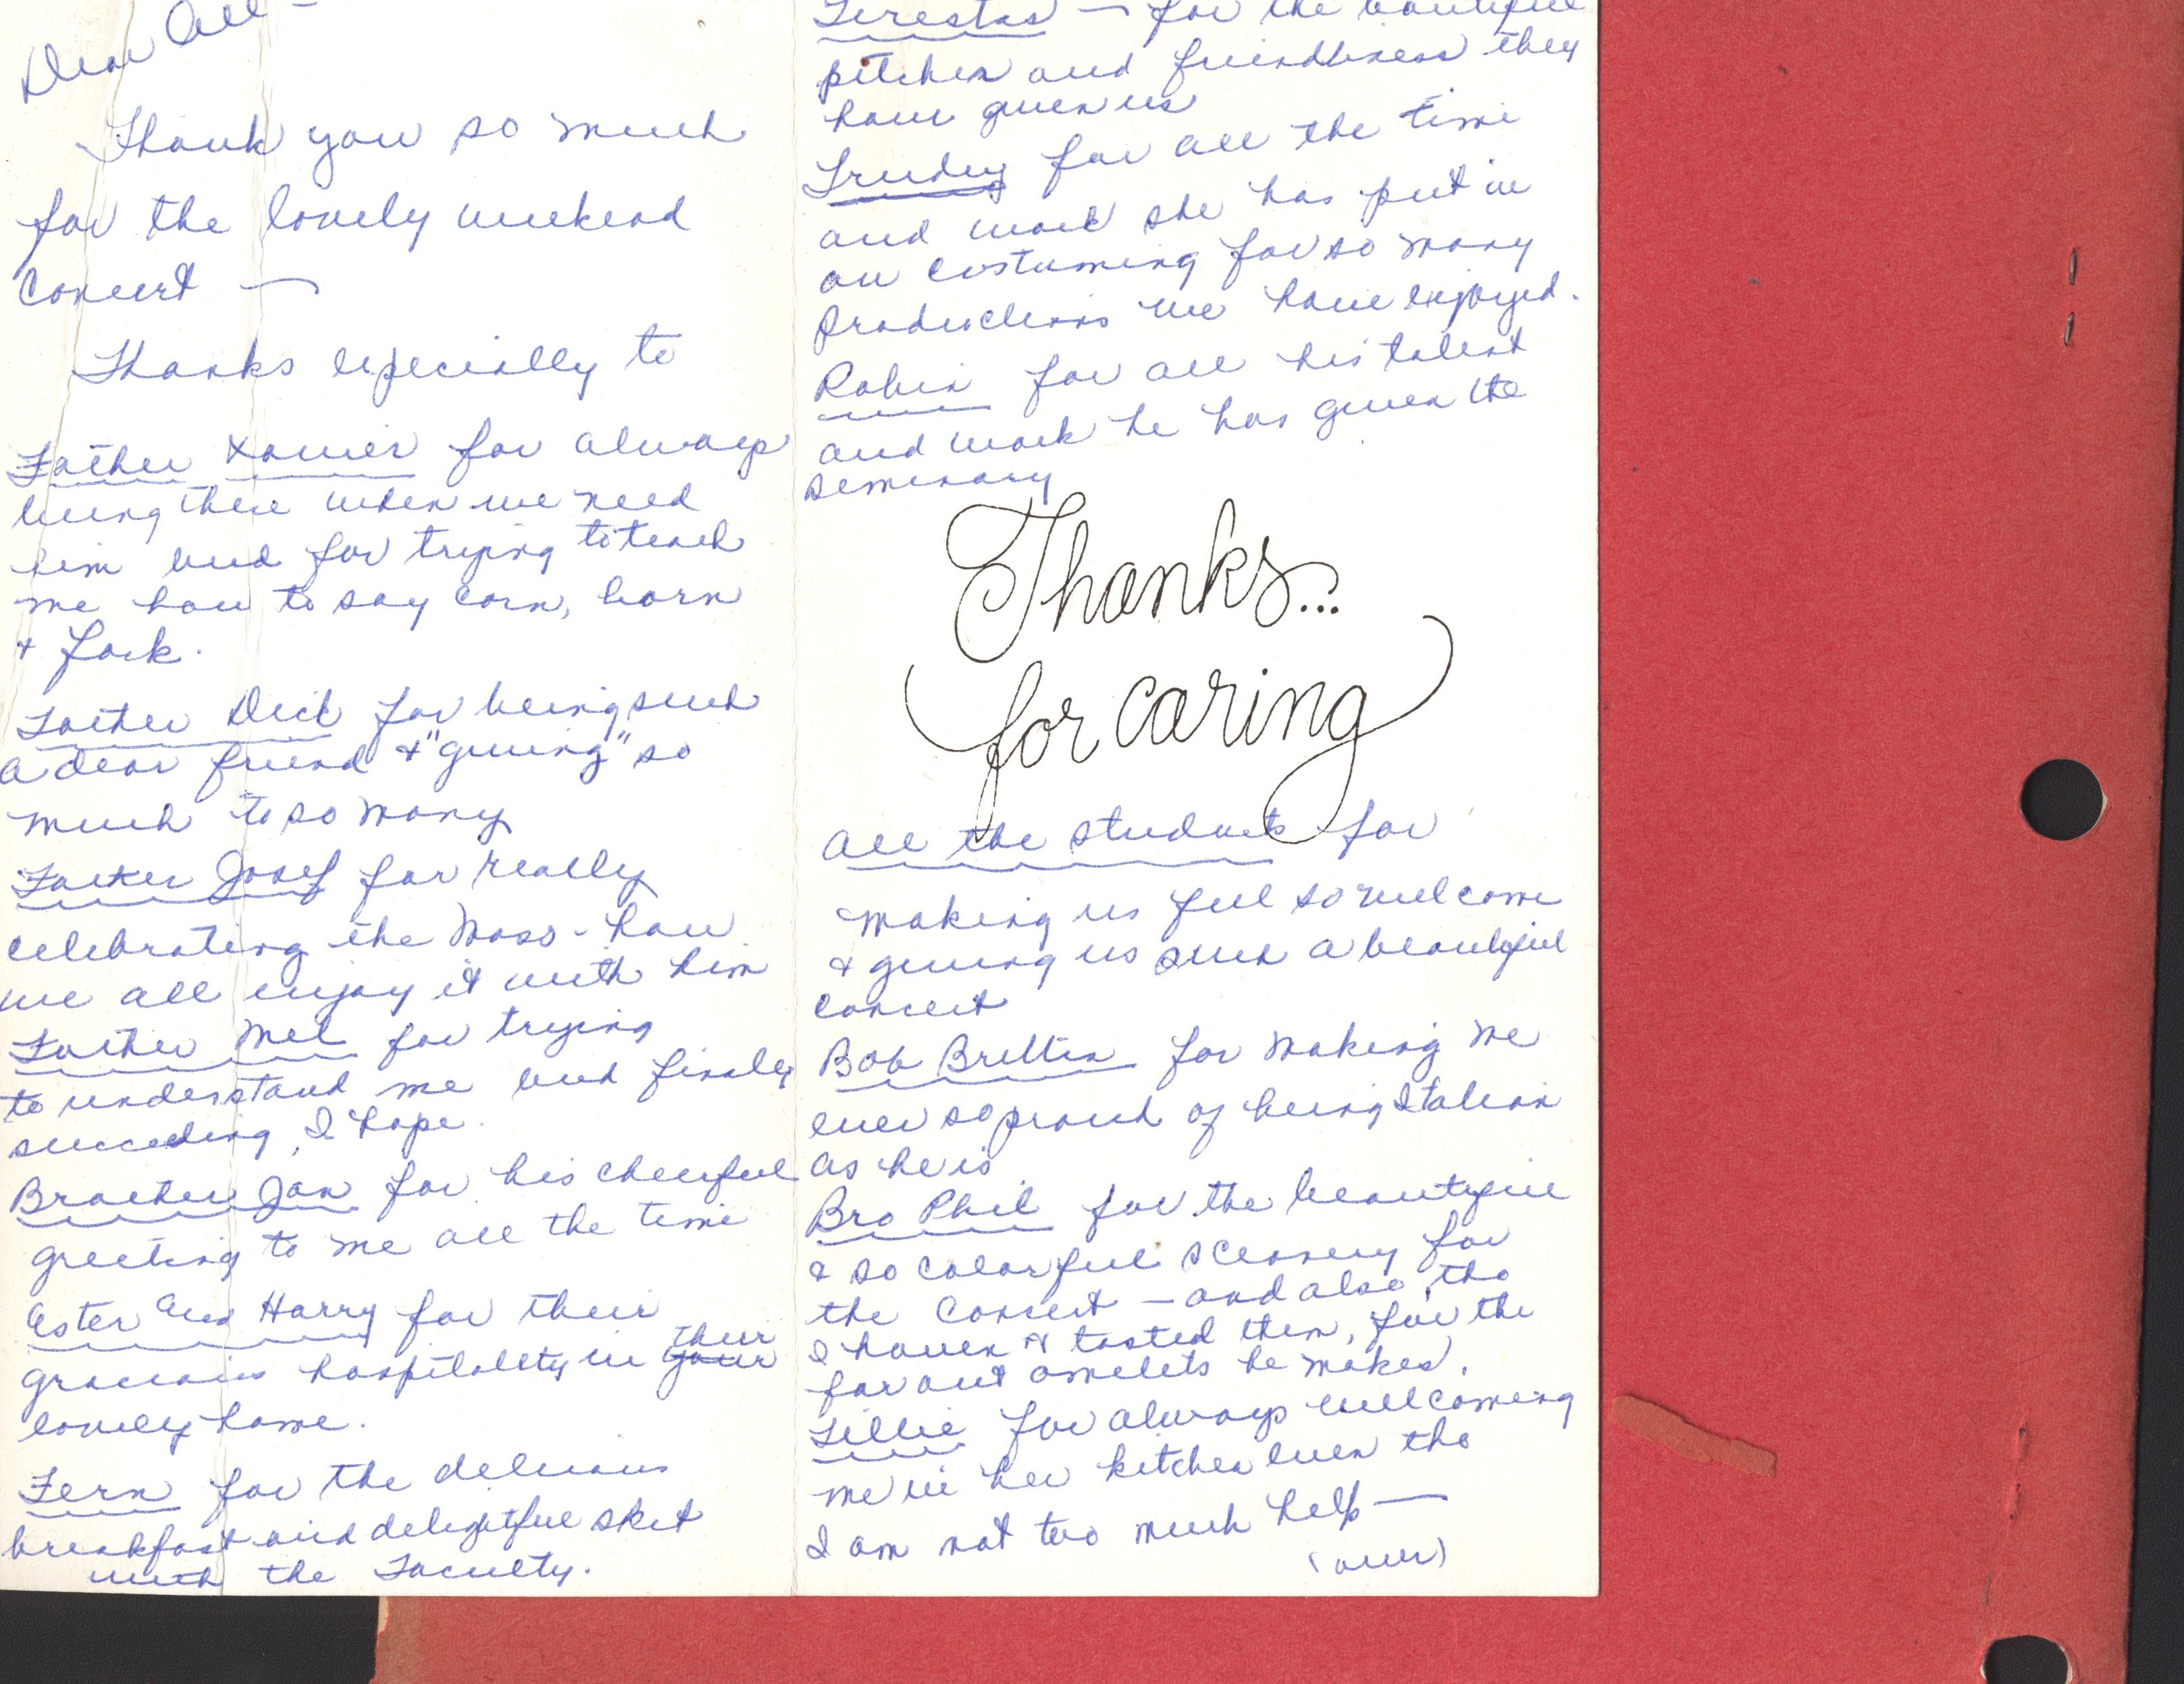 Dear All -
Thank you so much
for the lovely weekend
Concert —
Thanks especially to
Father Xavier for always
being there when we need
him and for trying to teach
me how to say corn, born
+ fork.
Father Dick for being such
a dear friend + "giving" so
much to so many
Father Josef for really
celebrating the Mass - how
we all enjoy it with him
Father Mel for trying
to understand me and finaly
succeeding, I hope.
Brother Jan for his cheerful
greeting to me all the time
Ester and Harry for their
gracious hospitality in your their
lovely home.
Fern for the delicious
breakfast and delightful skit
with the Faculty.
for the beautiful
pitcher and friendliness they
have given us
Trudy for all the time
and work she has put in
on costuming for so many
productions we have enjoyed.
Robin for all his talent
and work he has given the
seminary
Thanks...
for caring
All the students for
making us feel so welcome
+ giving us such a beautiful
concert
Bob Brittin for making me
ever so proud of being Italian
as he is
Bro Phil for the beautiful
& so colorful scenery for
the Concert — and also, tho
I haven't tasted them, for the
far out omelets he makes.
Tillie for always welcoming
me in her kitchen even tho
I am not too much help —
(over)